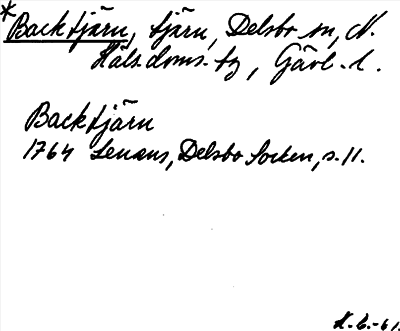 *Backtjärn, tjärn, Delsbo sn, N.
Häls. doms. tg, Gävl. l.
Backtjärn
1764 Lenæus, Delsbo Socken, s. 11.
K. G. -61.